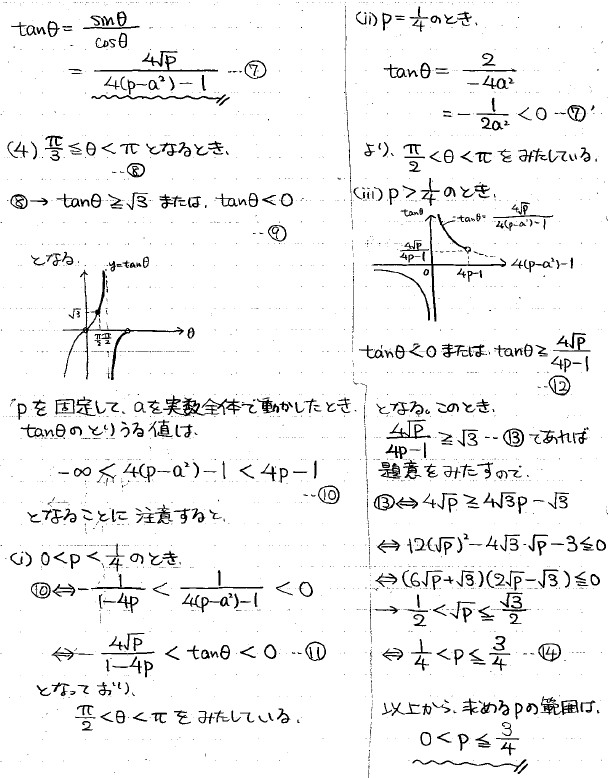 tanθ = sinθ/cosθ
= 4√p/(4(p-a²)-1) …⑦
(4) π/3 ≦ θ < π となるとき、
…⑧
⑧→ tanθ ≧ √3 または、tanθ < 0
…⑨
となる
y=tanθ
√3
0
π/3 π/2
θ
pを固定して、aを実数全体で動かしたとき
tanθのとりうる値は、
-∞ < 4(p-a²)-1 < 4p-1
…⑩
となることに注意すると、
(i) 0<p<1/4 のとき、
⑩⇔ -1/(1-4p) < 1/(4(p-a²)-1) < 0
⇔ -4√p/(1-4p) < tanθ < 0 …⑪
となっており、
π/2 < θ < π をみたしている。
(ii) p=1/4 のとき、
tanθ = 2/(-4a²)
= -1/(2a²) < 0 …⑦'
より、π/2 < θ < π をみたしている。
(iii) p>1/4 のとき、
tanθ
tanθ= 4√p/(4(p-a²)-1)
4√p/(4p-1)
0
4p-1
4(p-a²)-1
tanθ<0 または、tanθ ≧ 4√p/(4p-1)
…⑫
となる。このとき、
4√p/(4p-1) ≧ √3 …⑬ であれば
題意をみたすので、
⑬⇔ 4√p ≧ 4√3p-√3
⇔ 12(√p)²-4√3·√p-3≦0
⇔ (6√p+√3)(2√p-√3)≦0
→ 1/2 < √p ≦ √3/2
⇔ 1/4 < p ≦ 3/4 …⑭
以上から、求めるpの範囲は、
0 < p ≦ 3/4